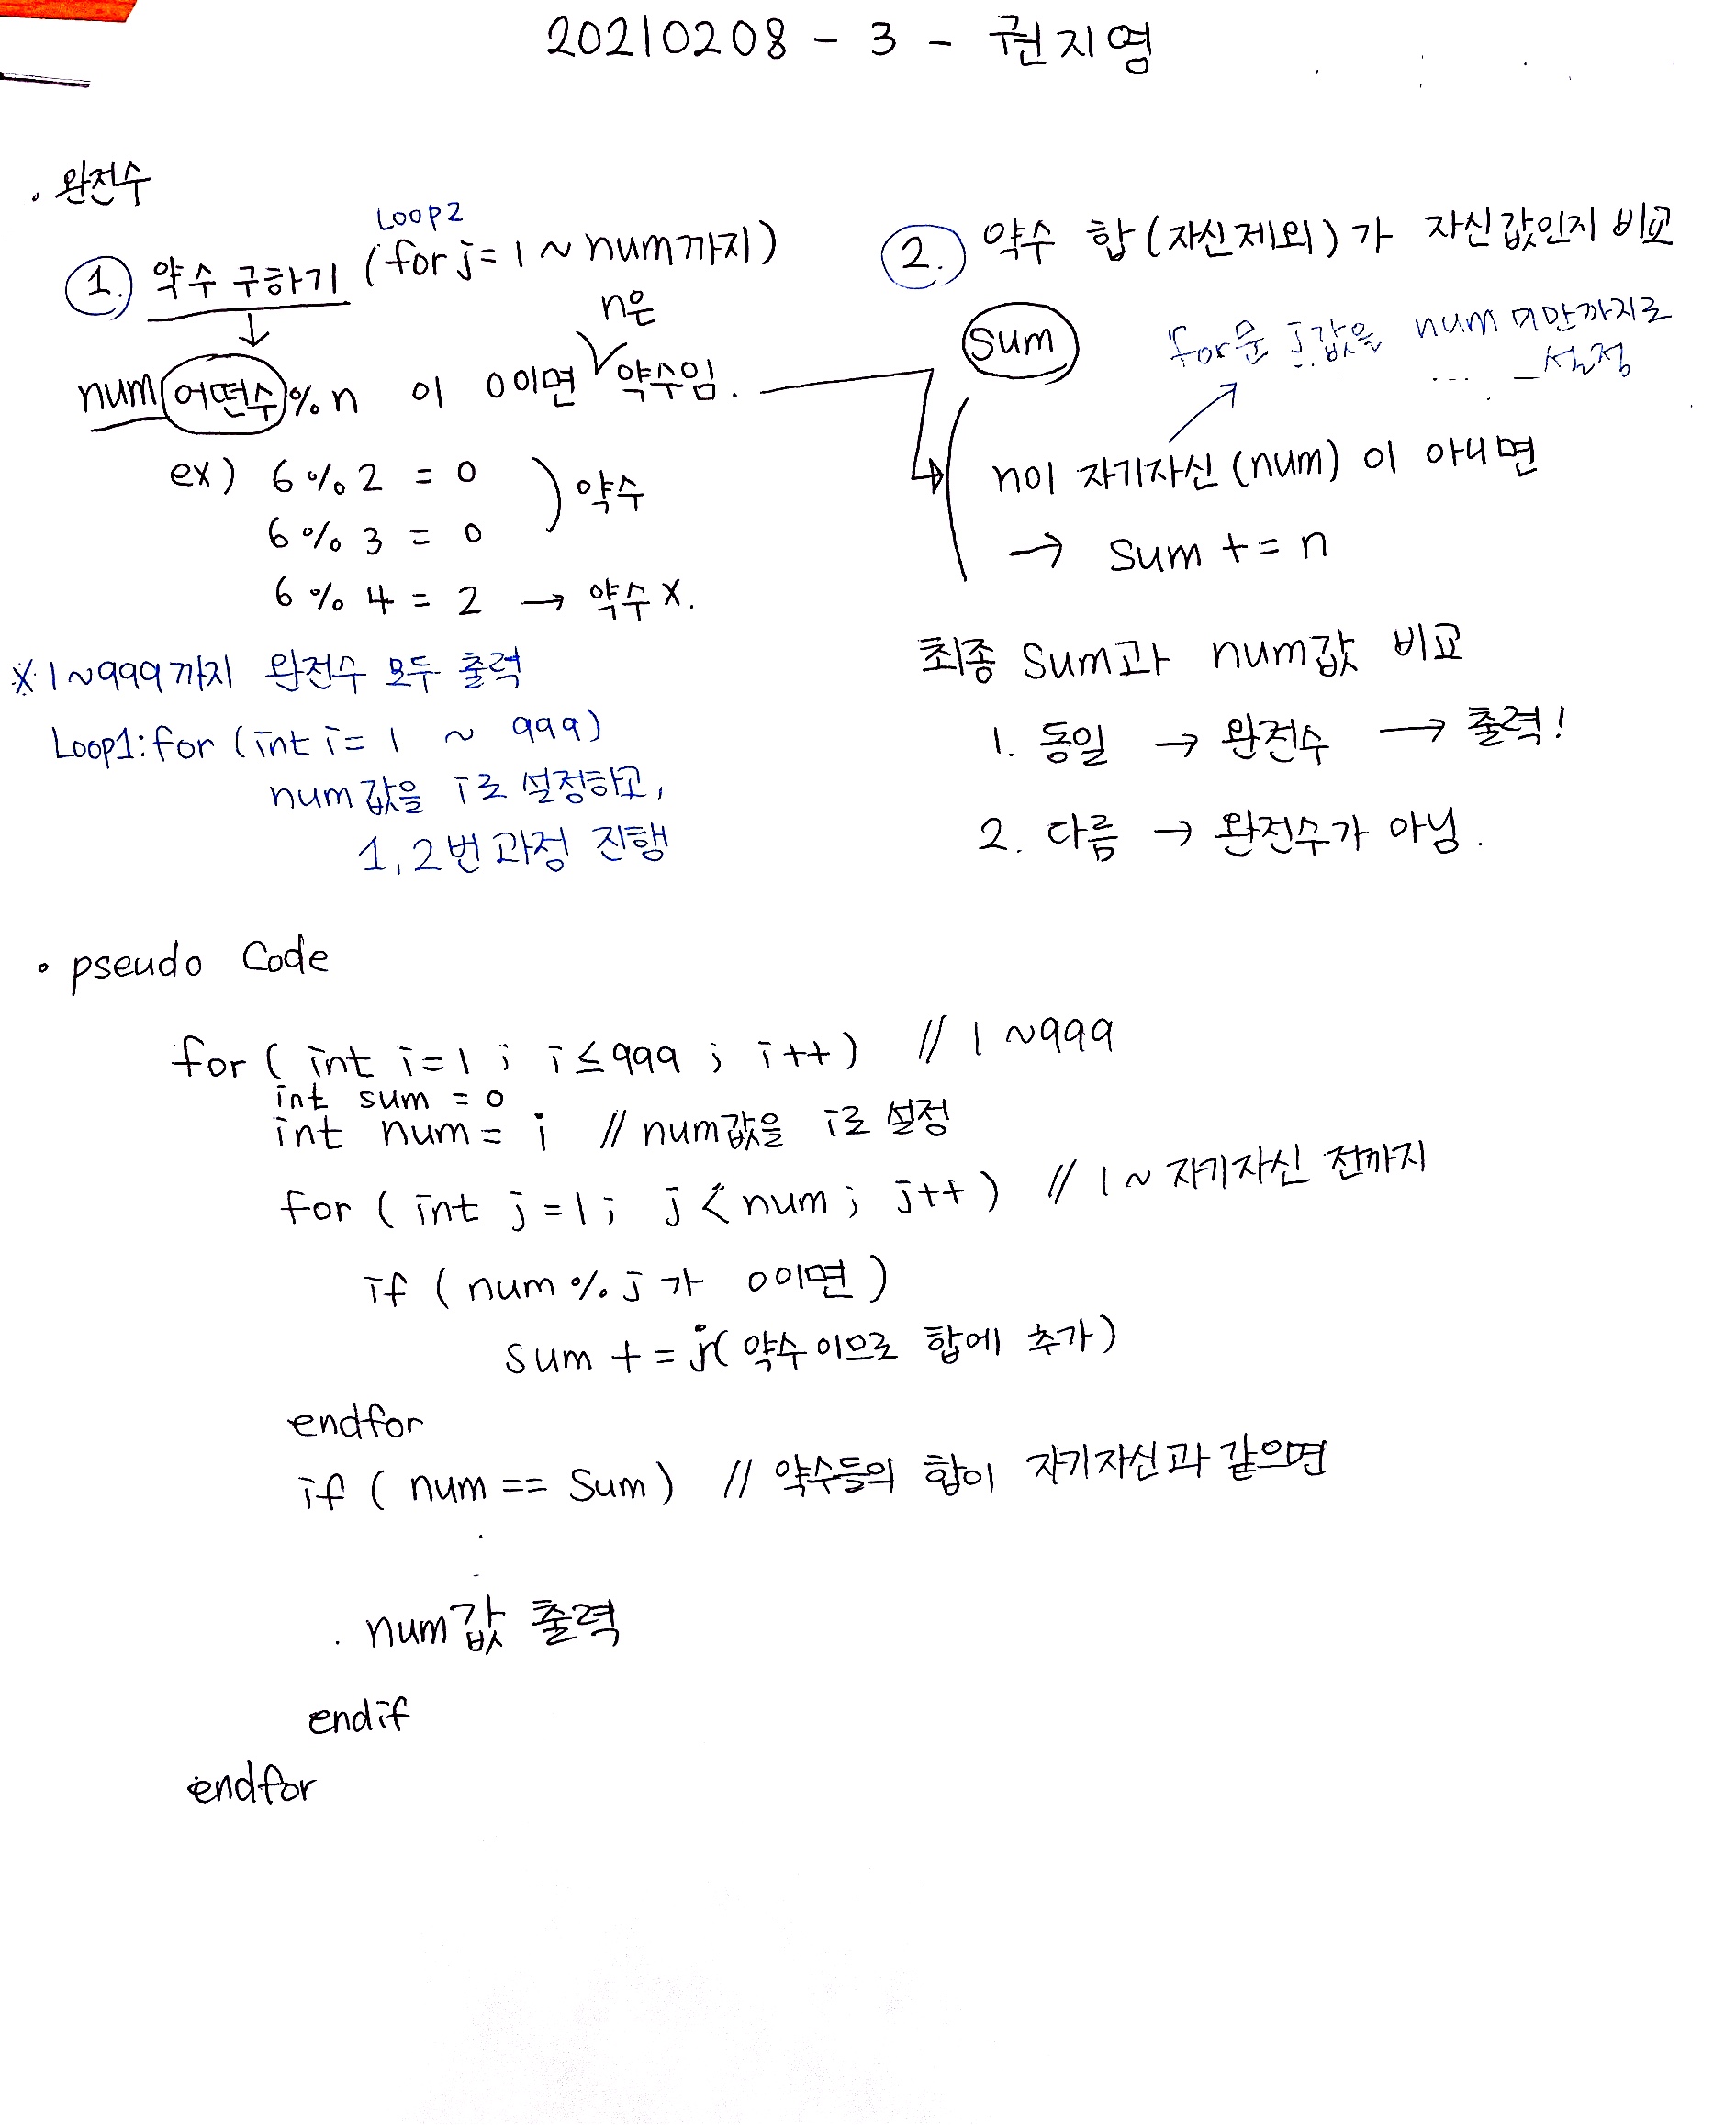 20210208 - 3 - 권지영
. 완전수
Loop2
1. 약수 구하기 (for j = 1 ~ num까지)
n은
num 어떤수 % n 이 0 이면 약수임.
ex) 6 % 2 = 0
6 % 3 = 0
약수
6 % 4 = 2 → 약수 X.
※ 1~999까지 완전수 모두 출력
Loop1: for (int i = 1 ~ 999)
num값을 i로 설정하고,
1, 2번 과정 진행
2. 약수 합 (자신제외) 가 자신값인지 비교
Sum
for문 j값을 num 미만까지로
설정
n이 자기자신 (num) 이 아니면
→ Sum += n
최종 Sum과 num값 비교
1. 동일 → 완전수 → 출력!
2. 다름 → 완전수가 아님.
• pseudo Code
for ( int i=1 ; i ≤ 999 ; i++) // 1 ~999
int sum = 0
int num = i // num값을 i로 설정
for ( int j=1; j < num ; j++ ) // 1 ~ 자기자신 전까지
if ( num % j 가 0이면 )
sum += j( 약수이므로 합에 추가 )
endfor
if ( num == Sum ) // 약수들의 합이 자기자신과 같으면
num값 출력
endif
endfor